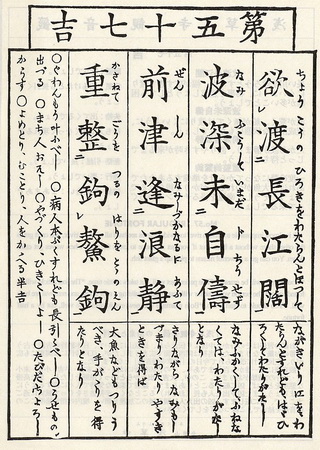 第五十七吉
ちょうこうのひろきをわたらんとほつして
欲渡長江闊
ながきいりに江をわ
たらんとすれども、はゞひ
ろくてわたりがたし
なみふこうしていまだトちうせず
波深未自儔
なみふかくして、ふねな
くては、わたりがたし
となり
ぜんしんなみしづかなるにあふて
前津逢浪静
さりながらなみもし
づまり、わたりやすき
ときを得ば
かさねてごうをつるのはりをとゝのえん
重整鉤鰲鉤
大魚などもつりう
べき、手がゝりを得
たりとなり
○ぐわんもう叶ふべし ○病人本ぶくすれども長引べし ○うせもの
出づる ○まち人おそし ○やづくり、ひきこしよし ○たびだちよろし
からず ○よめとり、むことり、人をかゝへる半吉